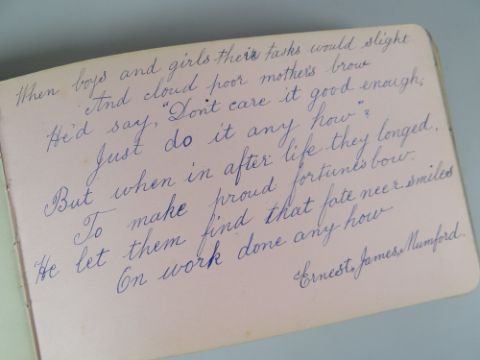 When boys and girls their tasks would slight
And cloud poor mothers brow
He'd say, "Dont care it good enough,
Just do it any how";
But when in after life they longed,
To make proud fortunes bow.
He let them find that fate neer smiles
On work done any how
Ernest. James. Mumford.